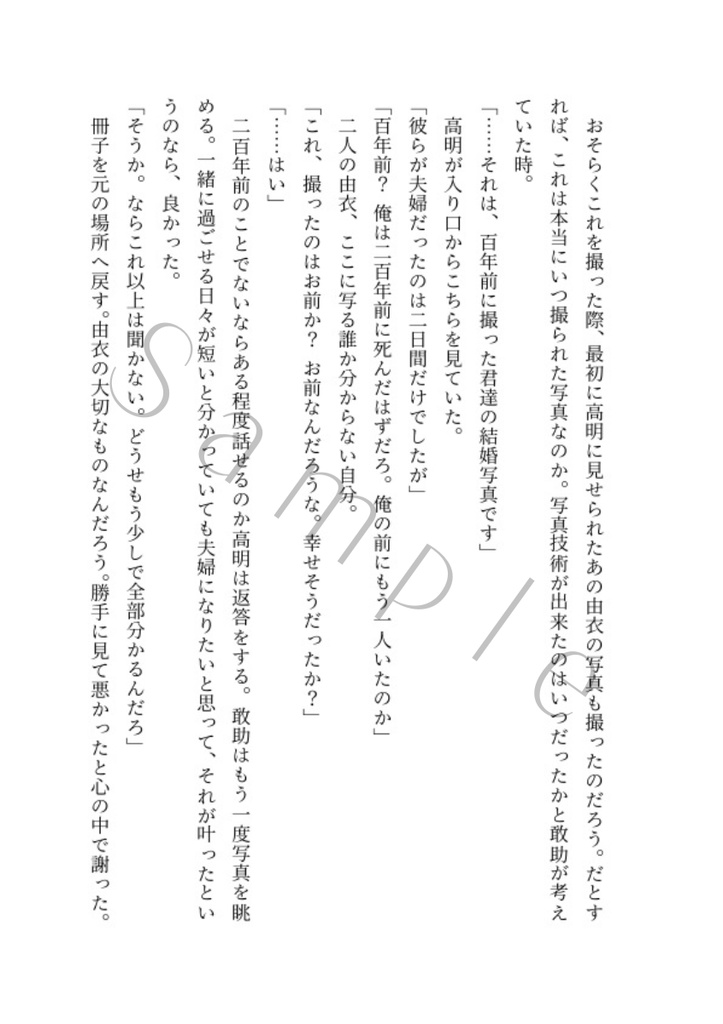 おそらくこれを撮った際、最初に高明に見せられたあの由衣の写真も撮ったのだろう。だとす
れば、これは本当にいつ撮られた写真なのか。写真技術が出来たのはいつだったかと敢助が考え
ていた時。
「……それは、百年前に撮った君達の結婚写真です」
　高明が入り口からこちらを見ていた。
「彼らが夫婦だったのは二日間だけでしたが」
「百年前？　俺は二百年前に死んだはずだろ。俺の前にもう一人いたのか」
　二人の由衣、ここに写る誰か分からない自分。
「これ、撮ったのはお前か？　お前なんだろうな。幸せそうだったか？」
「……はい」
　二百年前のことでないならある程度話せるのか高明は返答をする。敢助はもう一度写真を眺
める。一緒に過ごせる日々が短いと分かっていても夫婦になりたいと思って、それが叶ったとい
うのなら、良かった。
「そうか。ならこれ以上は聞かない。どうせもう少しで全部分かるんだろ」
　冊子を元の場所へ戻す。由衣の大切なものなんだろう。勝手に見て悪かったと心の中で謝った。
Sample